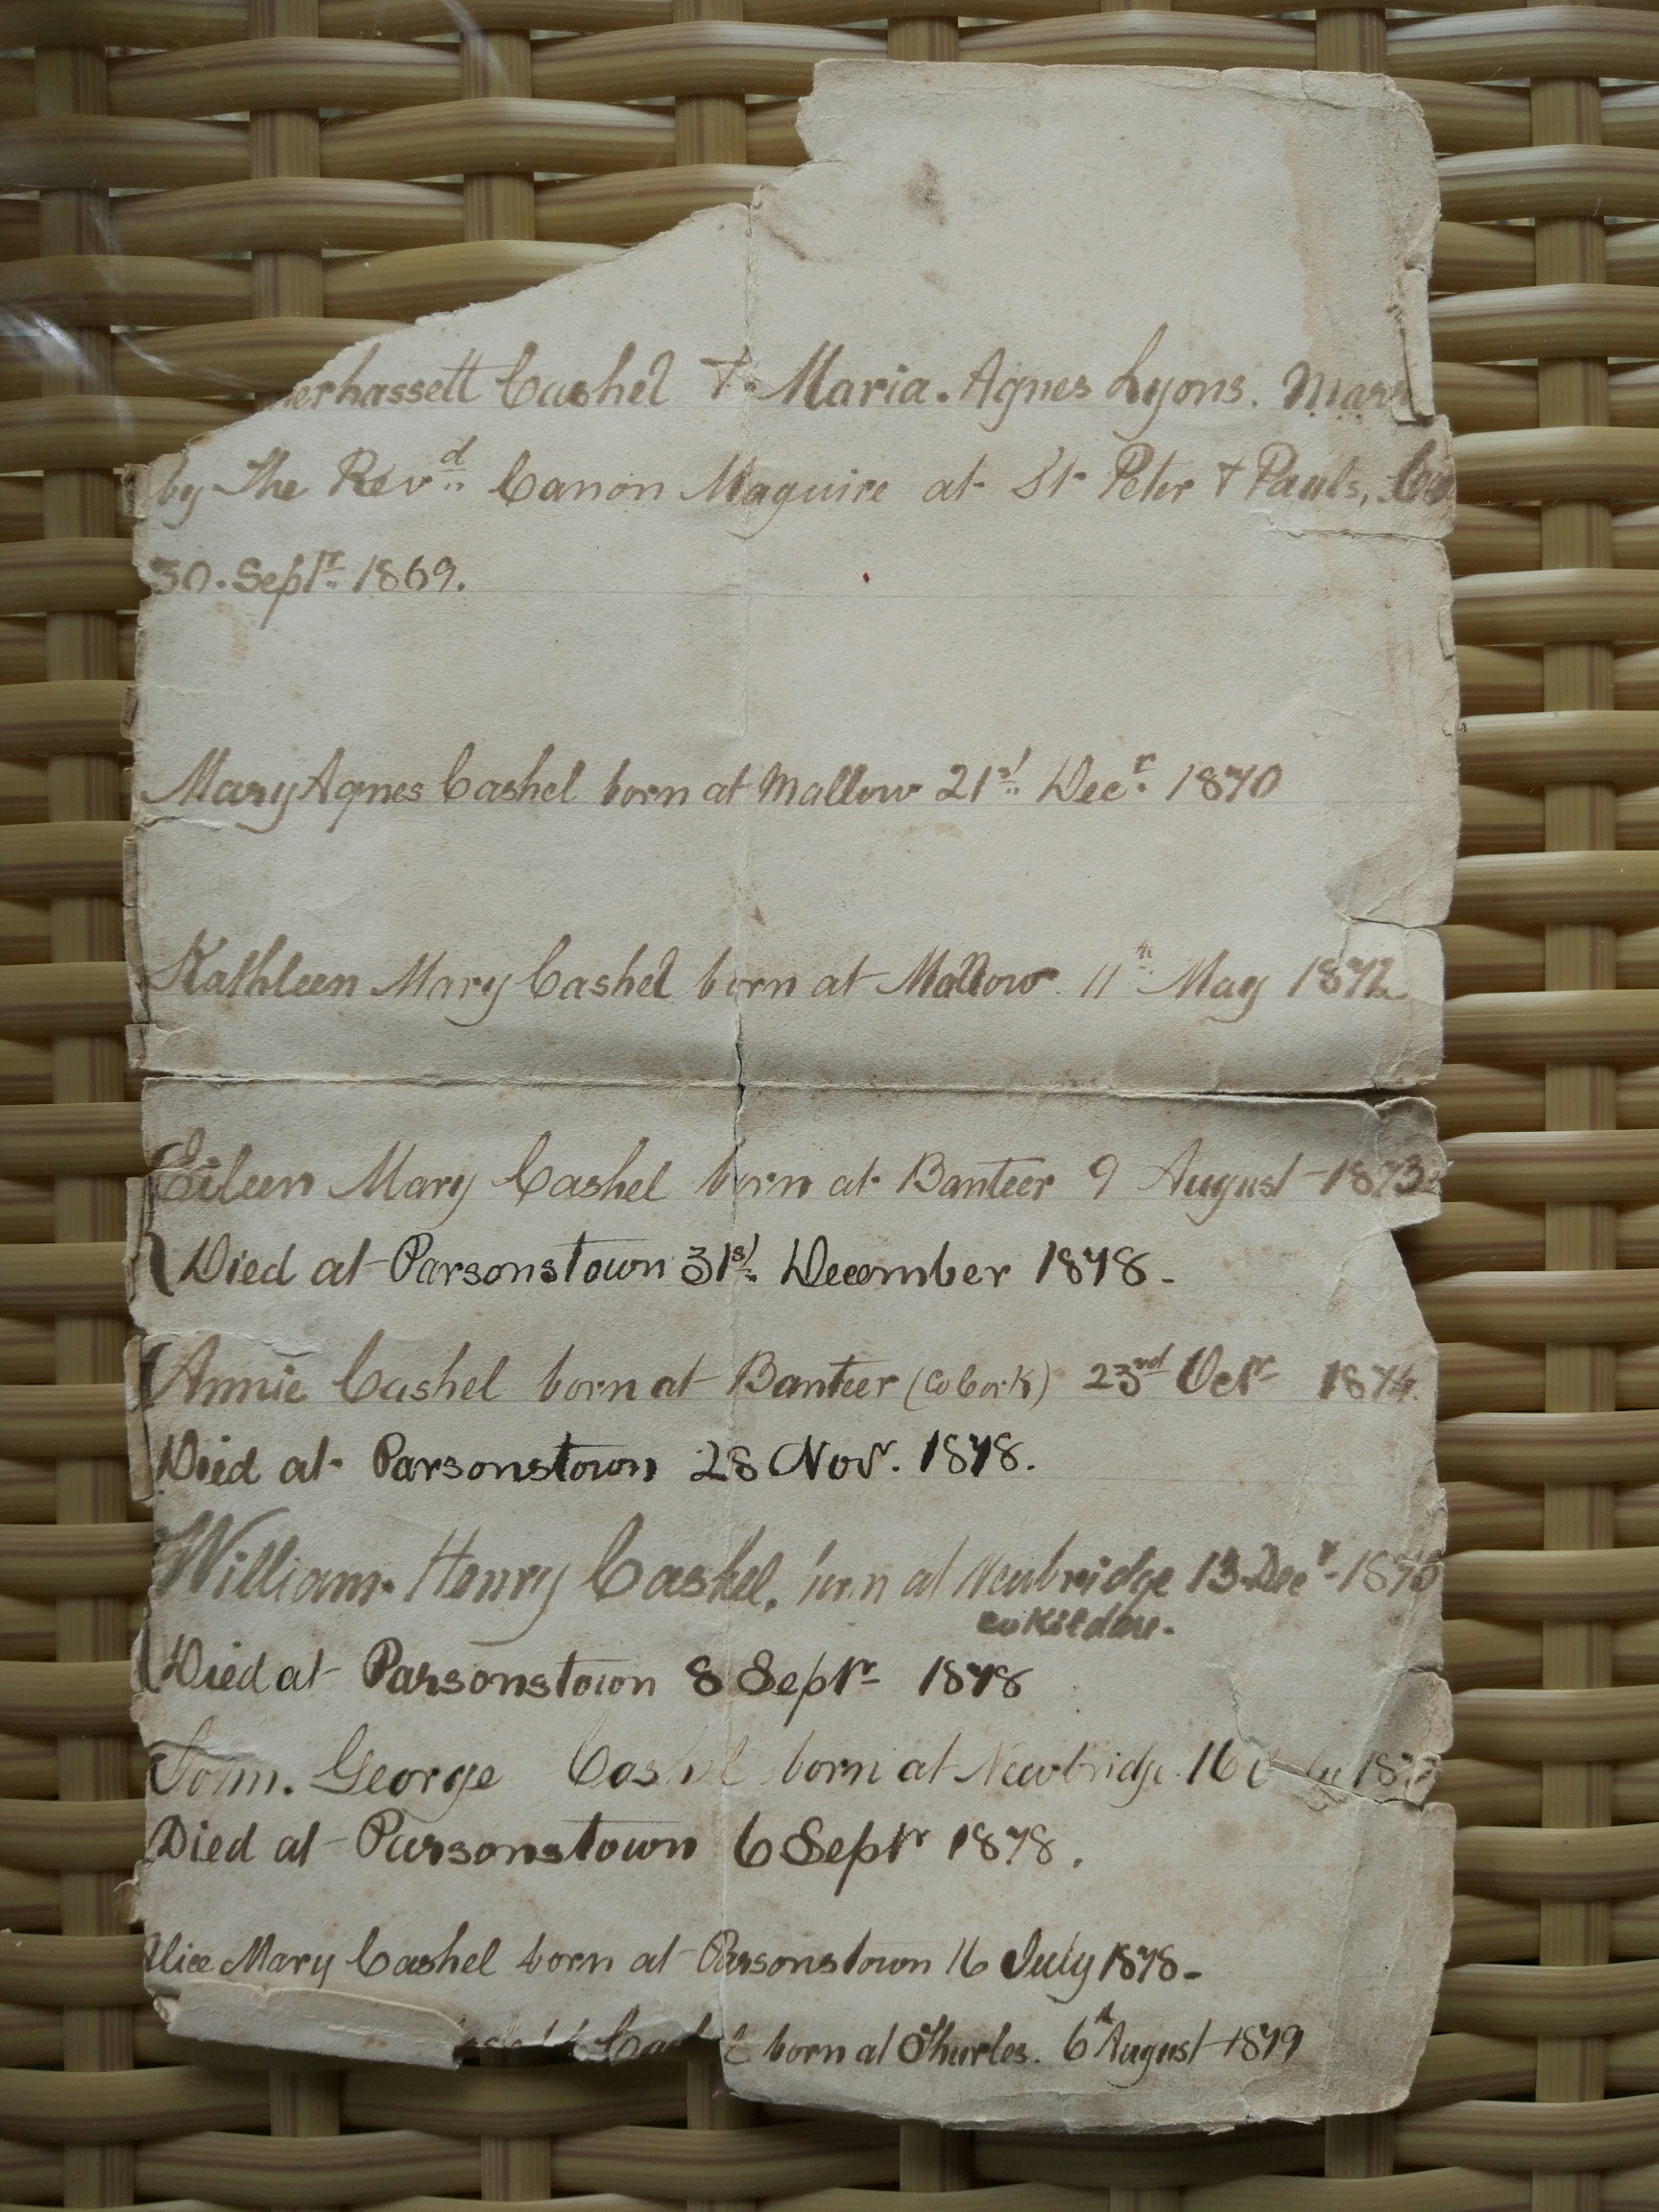 erhassett Cashel & Maria. Agnes Lyons. Marr
by The Revd. Canon Maguire at St Peter & Pauls,
30. Septr. 1869.
Mary Agnes Cashel born at Mallow 21st. Decr. 1870
Kathleen Mary Cashel born at Mallow 11th May 1872
Eileen Mary Cashel born at Banteer 9 August 1873
Died at Parsonstown 31st. December 1878.
Annie Cashel born at Banteer (Co Cork) 23nd Octr 1874.
Died at Parsonstown 28 Novr. 1878.
William. Henry Cashel, born at Newbridge 13 Decr.
Co Kildare.
Died at Parsonstown 8 Septr 1878
John. George Cashel born at Newbridge 16
Died at Parsonstown 6 Septr 1878.
Alice Mary Cashel born at Parsonstown 16 July 1878-
Cashel born at Thurles. 6th August 1879